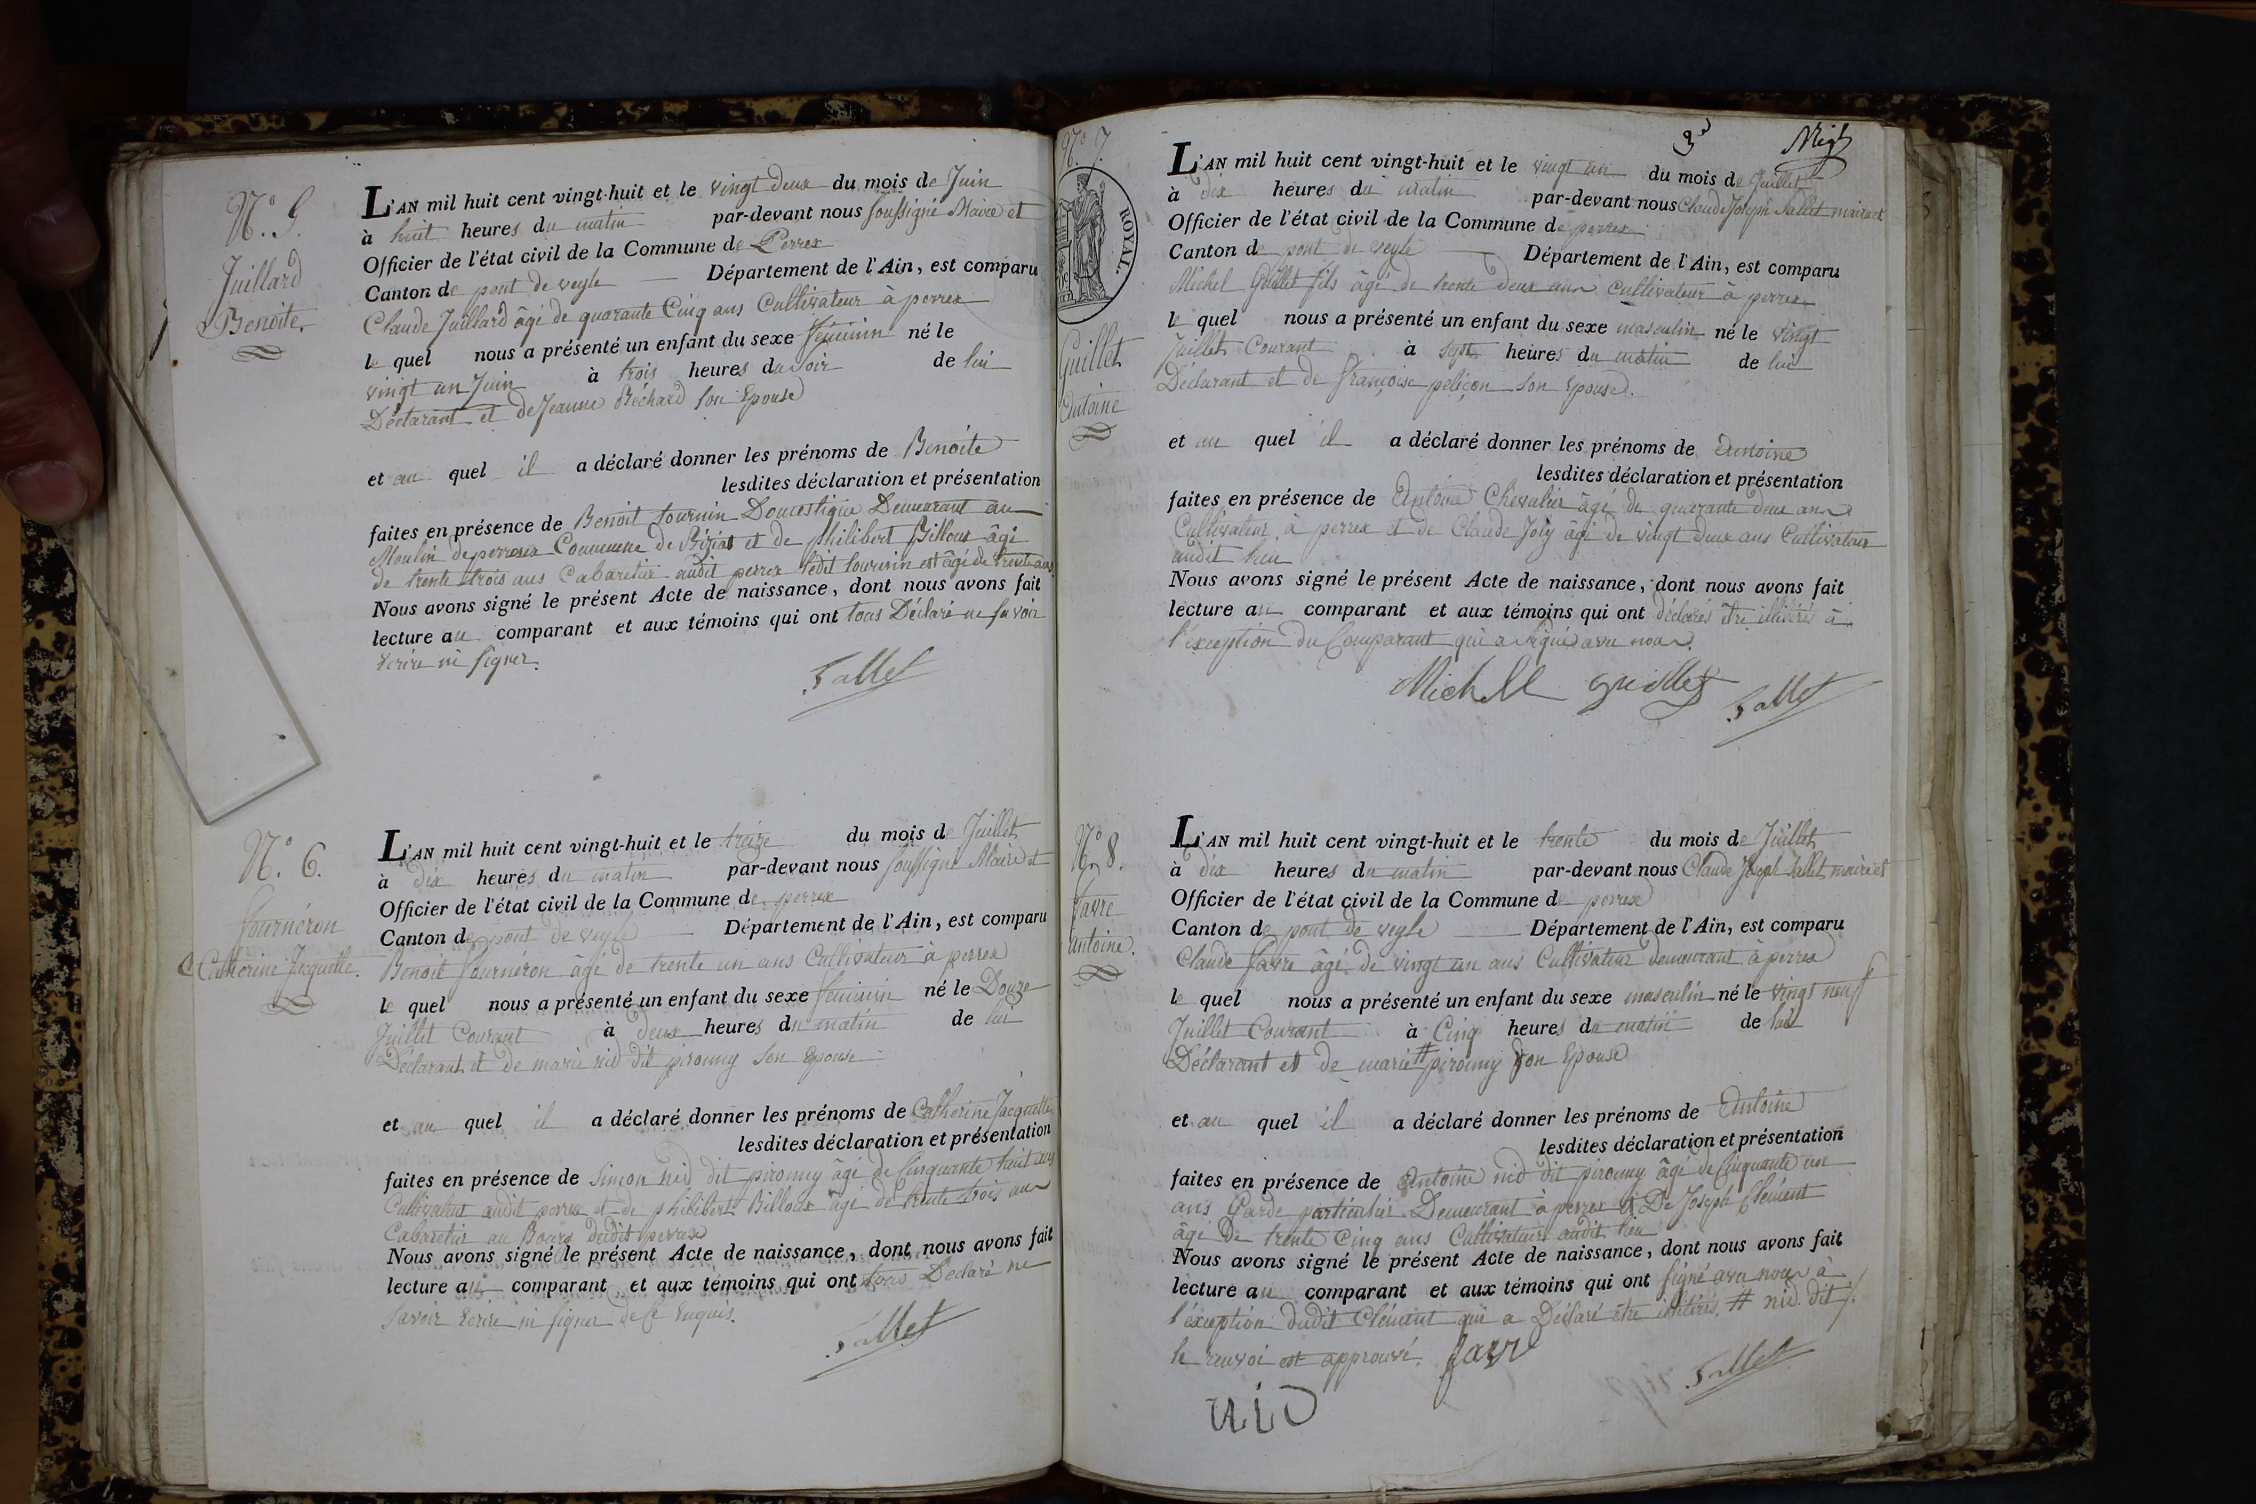 N.º 5.
Juillard
Benoite.
L'AN mil huit cent vingt-huit et le vingt deux du mois de Juin
à huit heures du matin par-devant nous soussigné Maire et
Officier de l'état civil de la Commune de Perrex
Canton de pont de veyle Département de l'Ain, est comparu
Claude Juillard âgé de quarante Cinq ans Cultivateur à perrex
le quel nous a présenté un enfant du sexe féminin né le
vingt un Juin à trois heures du Soir de lui
Déclarant et de Jeanne Réchard son Epouse
et au quel il a déclaré donner les prénoms de Benoite
lesdites déclaration et présentation
faites en présence de Benoit tournin Domestique Demeurant au
Moulin de perrex Commune de Biziat et de philibert Billoux âgé
de trente trois ans Cabaretier audit perrex ledit tournin est âgé de trente ans
Nous avons signé le présent Acte de naissance, dont nous avons fait
lecture au comparant et aux témoins qui ont tous Déclaré ne savoir
écrire ni signer.
Sallet
N.º 6.
fournéron
Catherine Jacquette.
L'AN mil huit cent vingt-huit et le treize du mois de Juillet
à dix heures du matin par-devant nous soussigné Maire et
Officier de l'état civil de la Commune de perrex
Canton de pont de veyle Département de l'Ain, est comparu
Benoit fournéron âgé de trente un ans Cultivateur à perrex
le quel nous a présenté un enfant du sexe féminin né le Douze
Juillet Courant à deux heures du matin de lui
Déclarant et de marie nid dit piroumy son Epouse
et au quel il a déclaré donner les prénoms de Catherine Jacquette
lesdites déclaration et présentation
faites en présence de Simon nid dit piroumy âgé de Cinquante huit ans
Cultivateur audit perrex et de philibert Billoux âgé de trente trois ans
Cabaretier au Bourg dudit perrex
Nous avons signé le présent Acte de naissance, dont nous avons fait
lecture au comparant et aux témoins qui ont tous Déclaré ne
savoir écrire ni signer de ce enquis.
Sallet
3
N.º 7.
ROYAL.
Guillet
Antoine
L'AN mil huit cent vingt-huit et le vingt un du mois de Juillet
à dix heures du matin par-devant nous Claude Joseph Sallet maire et
Officier de l'état civil de la Commune de perrex
Canton de pont de veyle Département de l'Ain, est comparu
Michel Guillet fils âgé de trente deux ans cultivateur à perrex
le quel nous a présenté un enfant du sexe masculin né le vingt
Juillet Courant à sept heures du matin de lui
Déclarant et de françoise peliçon son Epouse.
et au quel il a déclaré donner les prénoms de Antoine
lesdites déclaration et présentation
faites en présence de Antoine Chevalier âgé de quarante deux ans
Cultivateur à perrex et de Claude Joly âgé de vingt deux ans Cultivateur
audit lieu
Nous avons signé le présent Acte de naissance, dont nous avons fait
lecture au comparant et aux témoins qui ont déclarés être illitérés à
l'exception du Comparant qui a signé avec nous.
Michell guillet Sallet
N.º 8.
favre
antoine.
L'AN mil huit cent vingt-huit et le trente du mois de Juillet
à dix heures du matin par-devant nous Claude Joseph Sallet maire et
Officier de l'état civil de la Commune de perrex
Canton de pont de veyle Département de l'Ain, est comparu
Claude favre âgé de vingt un ans Cultivateur demeurant à perrex
le quel nous a présenté un enfant du sexe masculin né le vingt neuf
Juillet Courant à Cinq heures du matin de lui
Déclarant et de marie # piroumy son Epouse
et au quel il a déclaré donner les prénoms de Antoine
lesdites déclaration et présentation
faites en présence de Antoine nid dit piroumy âgé de Cinquante un
ans Garde particulier Demeurant à perrex et De Joseph Clément
âgé De trente Cinq ans Cultivateur audit lieu
Nous avons signé le présent Acte de naissance, dont nous avons fait
lecture au comparant et aux témoins qui ont signé avec nous à
l'exception dudit Clément qui a Déclaré être illitéré. # nid dit /.
le renvoi est approuvé. favre
Sallet
niD